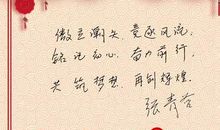 傲立潮头 竞逐风流
铭记初心，奋力前行，
共筑梦想，再创辉煌
张青谷